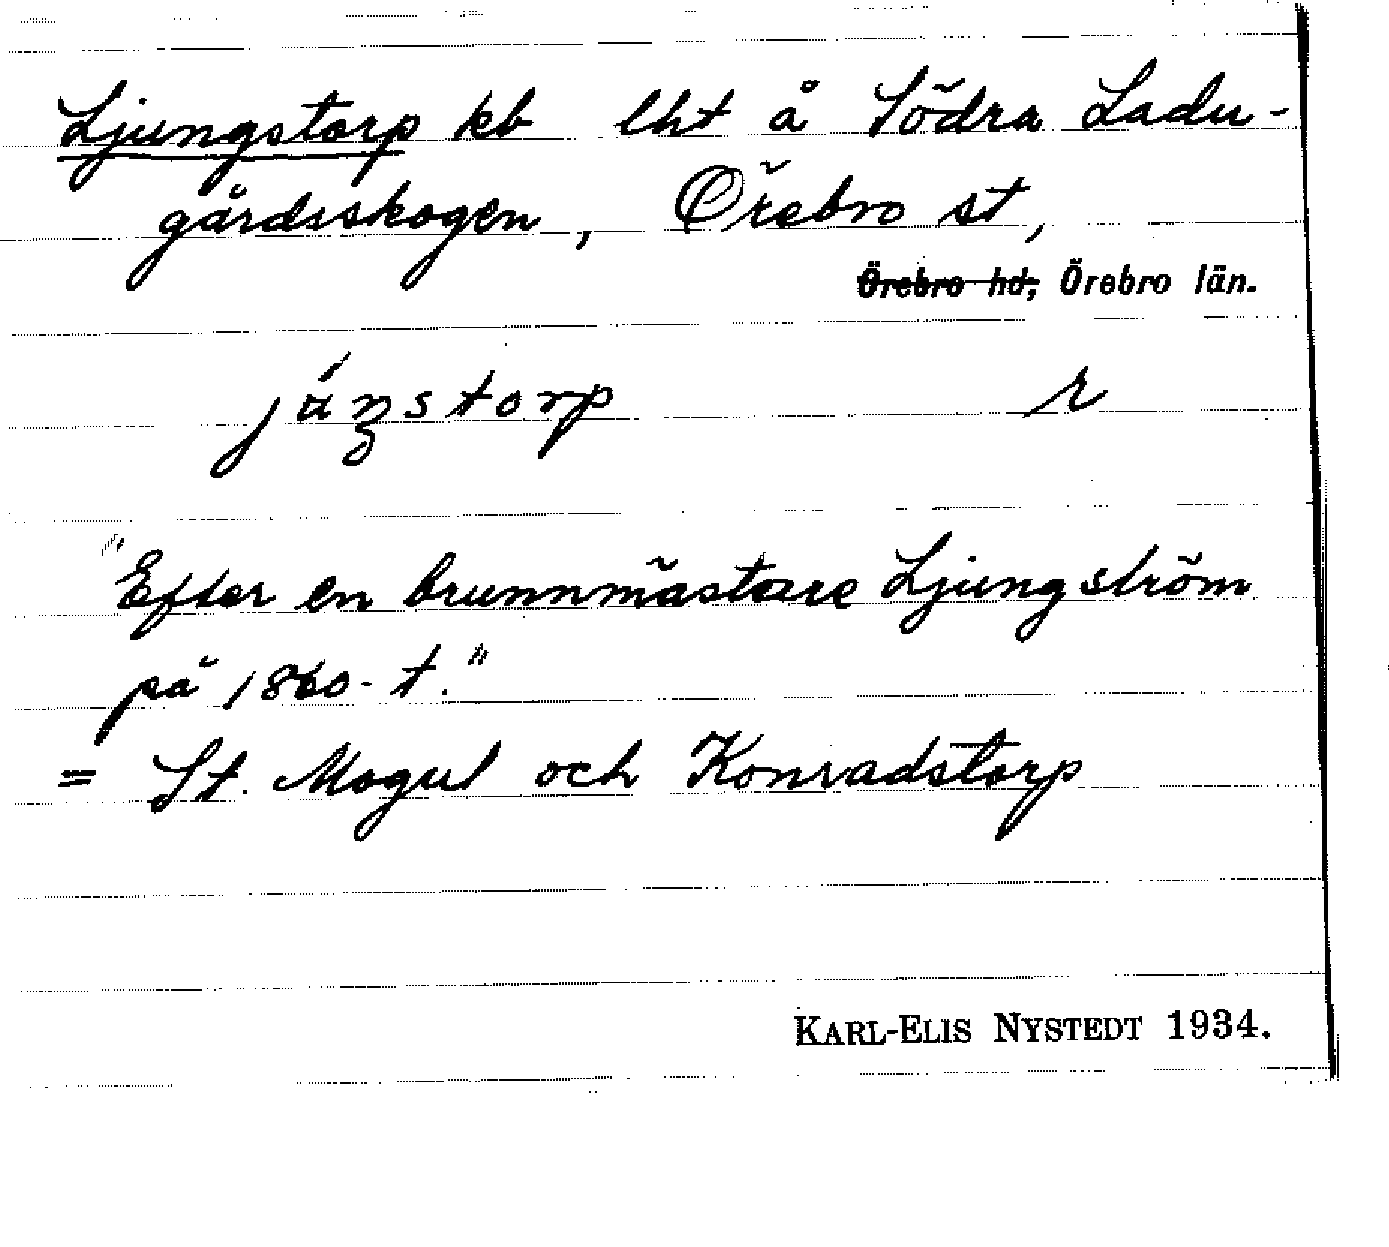 Ljungstorp kb lht å Södra Ladu-
gårdsskogen, Örebro st,
Örebro hd, Örebro län.
júŋstorp r
"Efter en brunnmästare Ljungström
på 1860-t."
= St. Mogul och Konradstorp
KARL-ELIS NYSTEDT 1934.